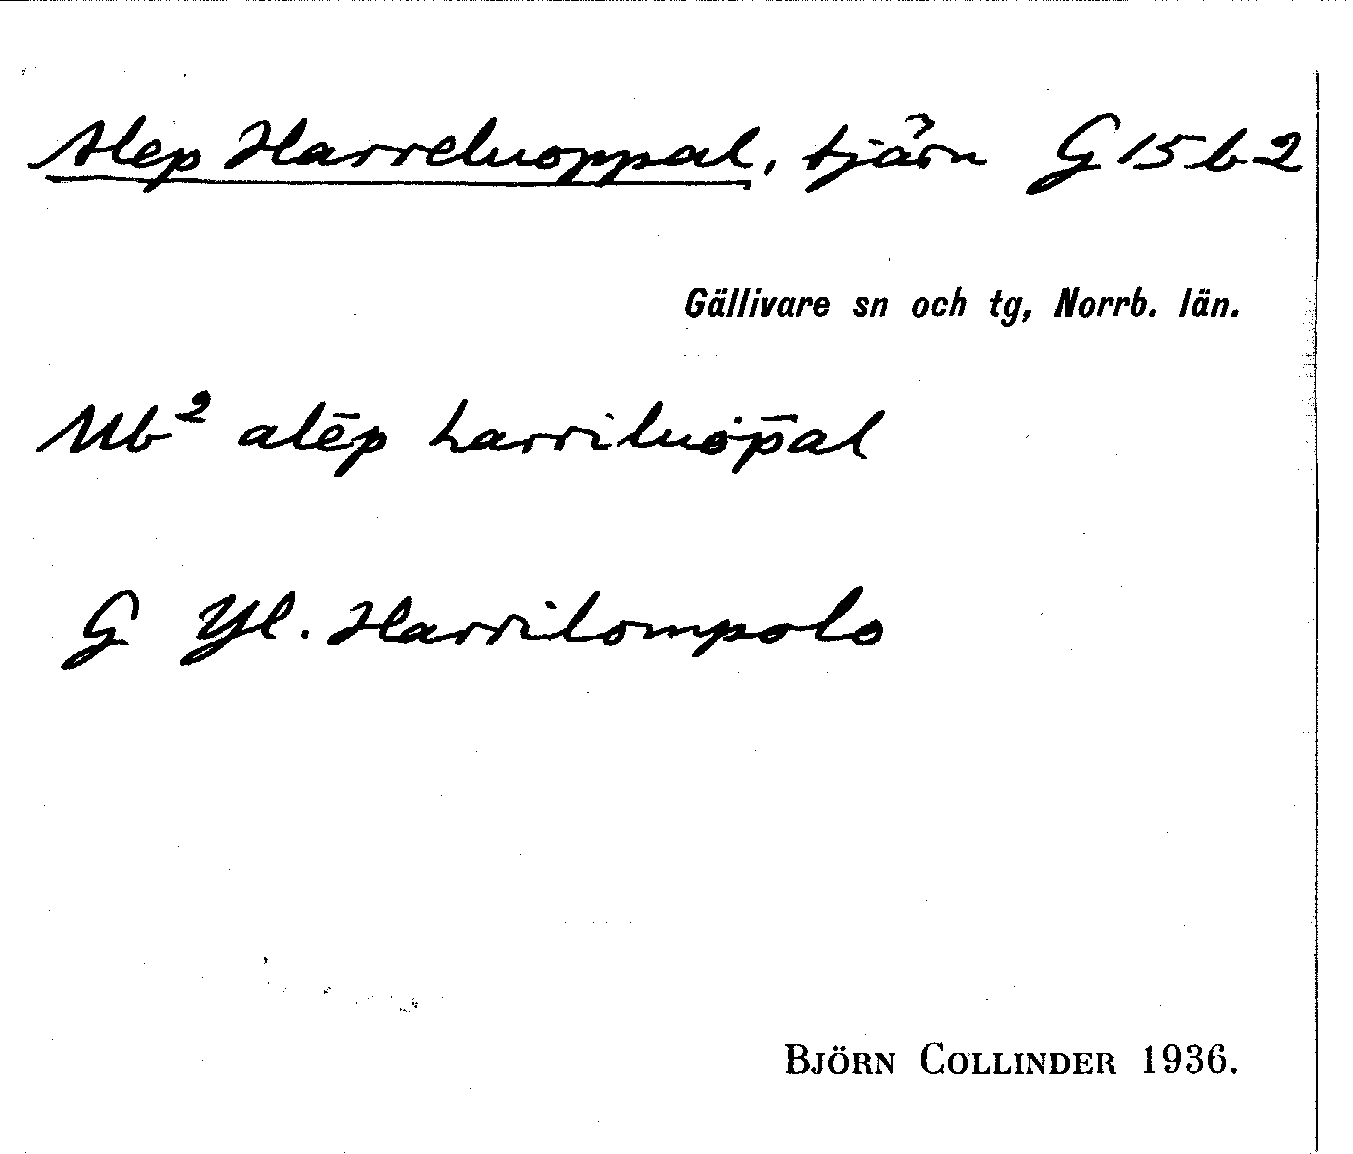 Alep Harreluoppal, tjärn G 15 b 2
Gällivare sn och tg, Norrb. län.
Mb² alēp harriluȯp̄al
G Yl. Harrilompolo
BJÖRN COLLINDER 1936.